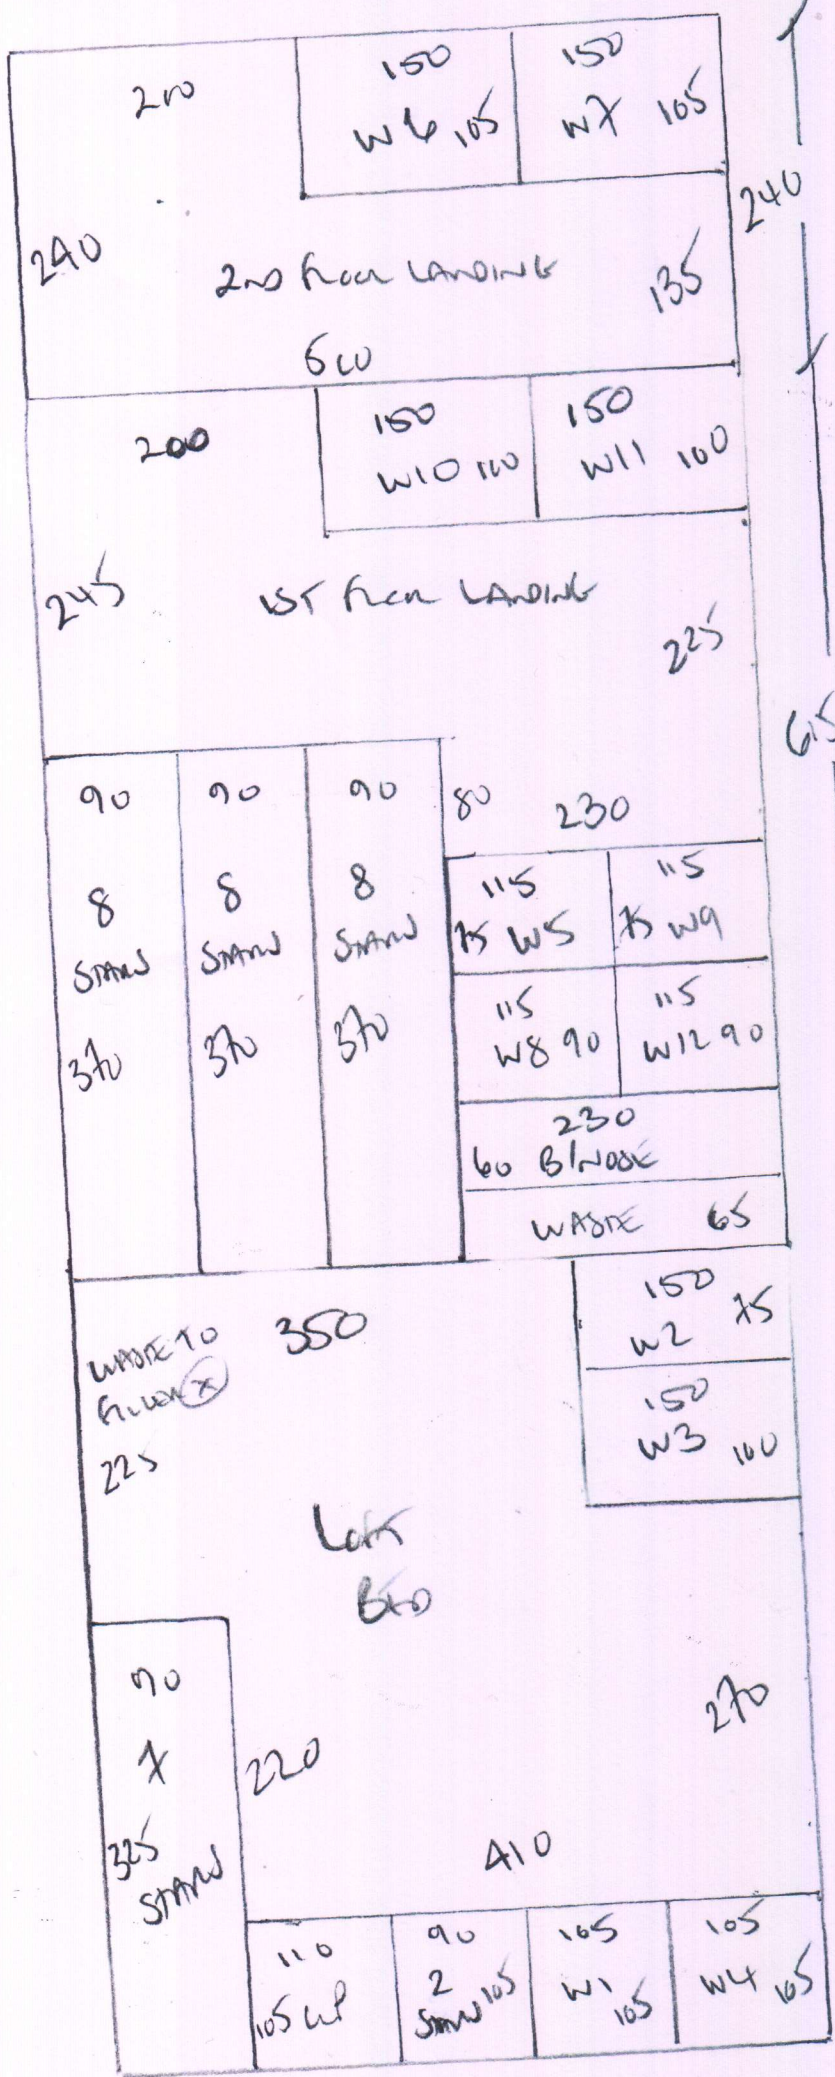 210
150
W6 105
150
W7 105
240
2ND FLOOR LANDING
135
240
500
200
150
W10 100
150
W11 100
245
1ST FLOOR LANDING
225
615
90
8
STAIRS
370
90
8
STAIRS
370
90
8
STAIRS
370
80 230
115
75 W5
115
75 W9
115
W8 90
115
W12 90
230
60 B/NOSE
WASTE 65
WASTE TO
350
225
150
W2 75
150
W3 100
LOFT
BED
90
7
325
STAIRS
220
270
410
110
105 UP
90
2
STAIRS 105
105
W1
105
105
W4 105